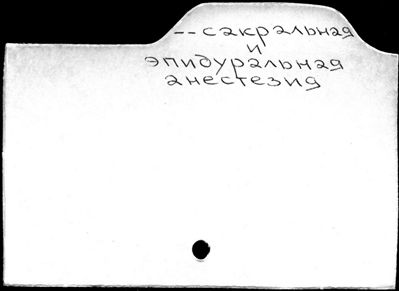 -- сакральная
и
эпидуральная
анестезия